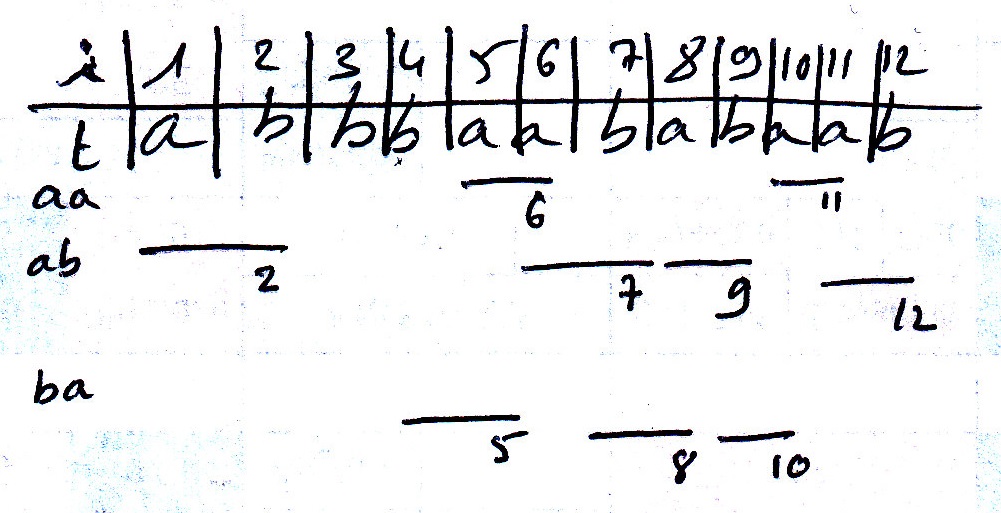 i | 1 | 2 | 3 | 4 | 5 | 6 | 7 | 8 | 9 | 10 | 11 | 12
t | a | b | b | b | a | a | b | a | b | a | a | b
aa 6 11
ab 2 7 9 12
ba 5 8 10